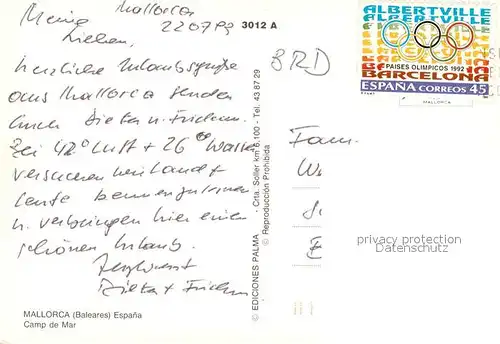 Mallorca
Meine 220793
Lieben,
herzliche Urlaubsgrüße
aus Mallorca senden
Euch Dieter u.
Bei 42° Luft + 26°
versuchen wir Land +
Leute kennenzulernen
u. verbringen hier einen
schönen Urlaub.
Dieter +
MALLORCA (Baleares) España
Camp de Mar
3012 A
© EDICIONES PALMA - Crta. Soller km 6,100 - Tel. 43 87 29
© Reproducción Prohibida
BRD
Fam.
ALBERTVILLE
ALBERTVILLE
PAISES OLIMPICOS 1992
BARCELONA
ESPAÑA CORREOS 45
MALLORCA
privacy protection
Datenschutz